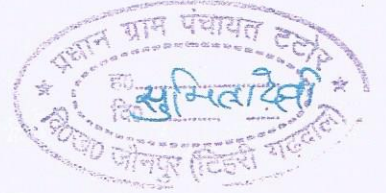 प्रधान ग्राम पंचायत टटोर
ह0
सुमिता देवी
वि0ख0 जौनपुर (टिहरी गढ़वाल)